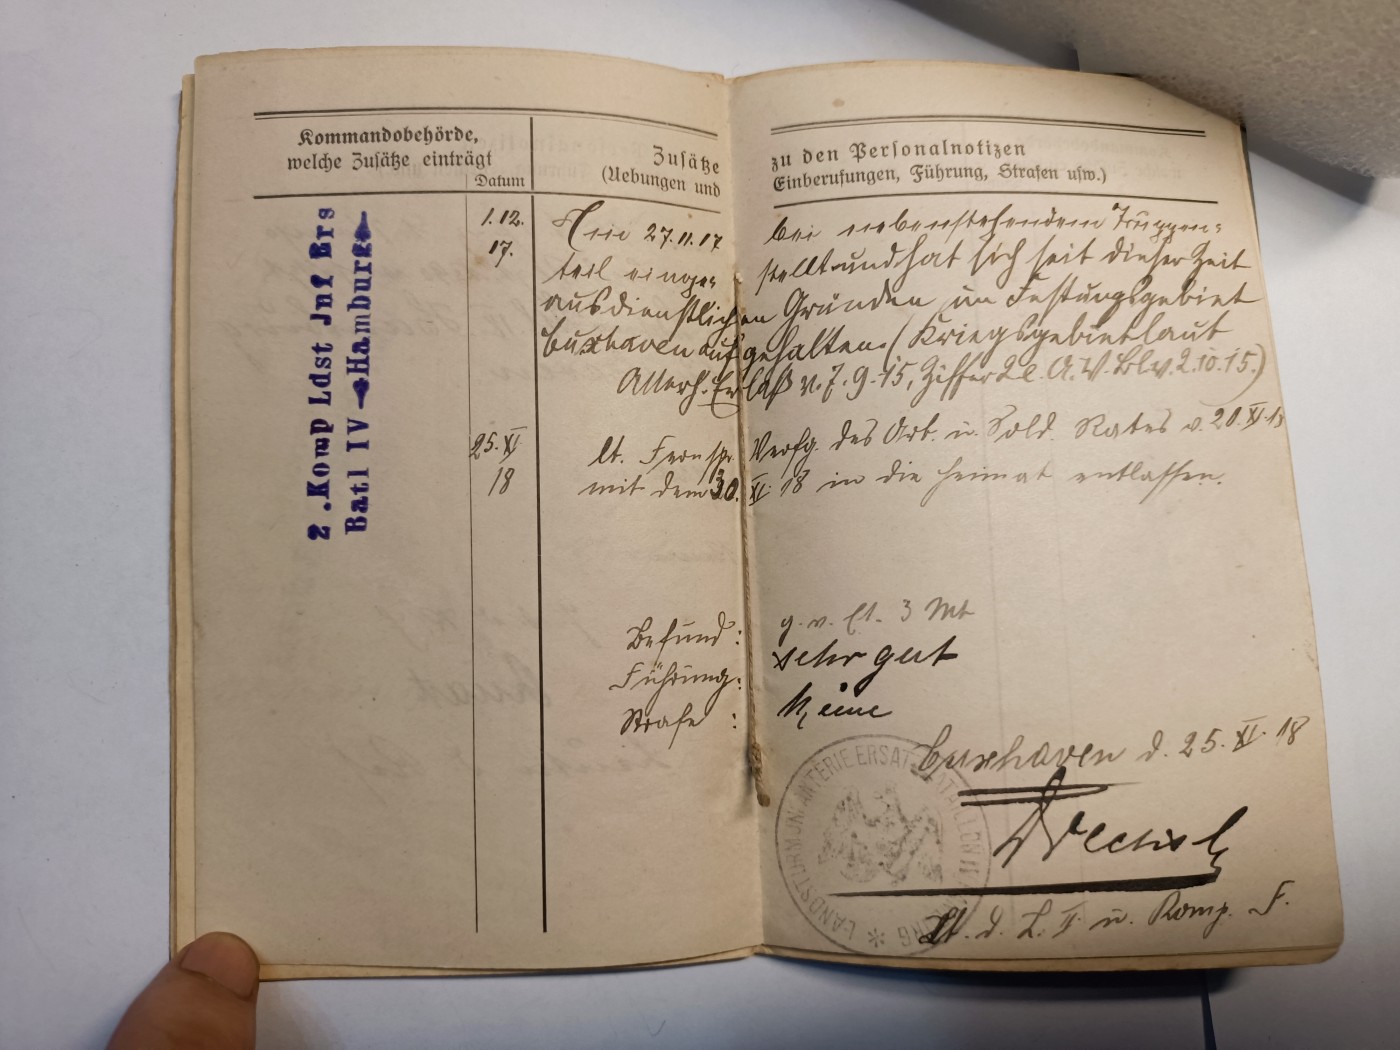 Kommandobehörde,
welche Zusätze einträgt
Datum
Zusätze
(Uebungen und
zu den Personalnotizen
Einberufungen, Führung, Strafen usw.)
2. Komp Ldst Jnf Ers
Batl IV Hamburg
1.12.
17.
Am 27.11.17 bei nebenstehendem Truppen-
teil einge- stellt und hat sich seit dieser Zeit
aus dienstlichen Gründen im Festungsgebiet
Cuxhaven aufgehalten. (Kriegsgebiet laut
Allerh. Erlaß v. 7.9.15, Ziffer 2 A.V.Bl. v. 2.10.15.)
25.XI
18
lt. Fernspr. Verfg. des Arb. u. Sold. Rates v. 20.XI.18
mit dem 30.XI.18 in die Heimat entlassen.
Befund: g.v. 3 Mt
Führung: sehr gut
Strafe: Keine
Cuxhaven d. 25.XI.18
LANDSTURM INFANTERIE ERSATZ BATAILLON IV HAMBURG
Lt. d. L. II u. Komp. F.